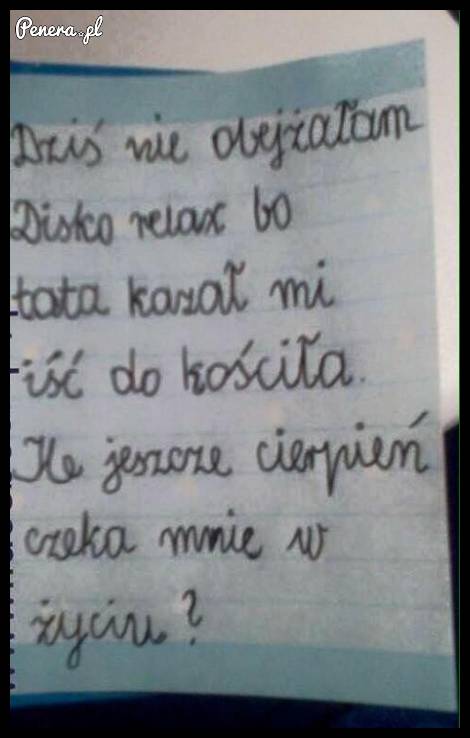 Penera.pl
Dziś nie obejżałam
Disko relax bo
tata kazał mi
iść do kościła.
Ile jeszcze cierpień
czeka mnie w
życiu?